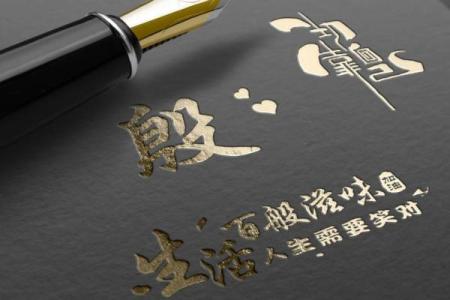 殷
生活百般滋味
加油
人生需要笑对